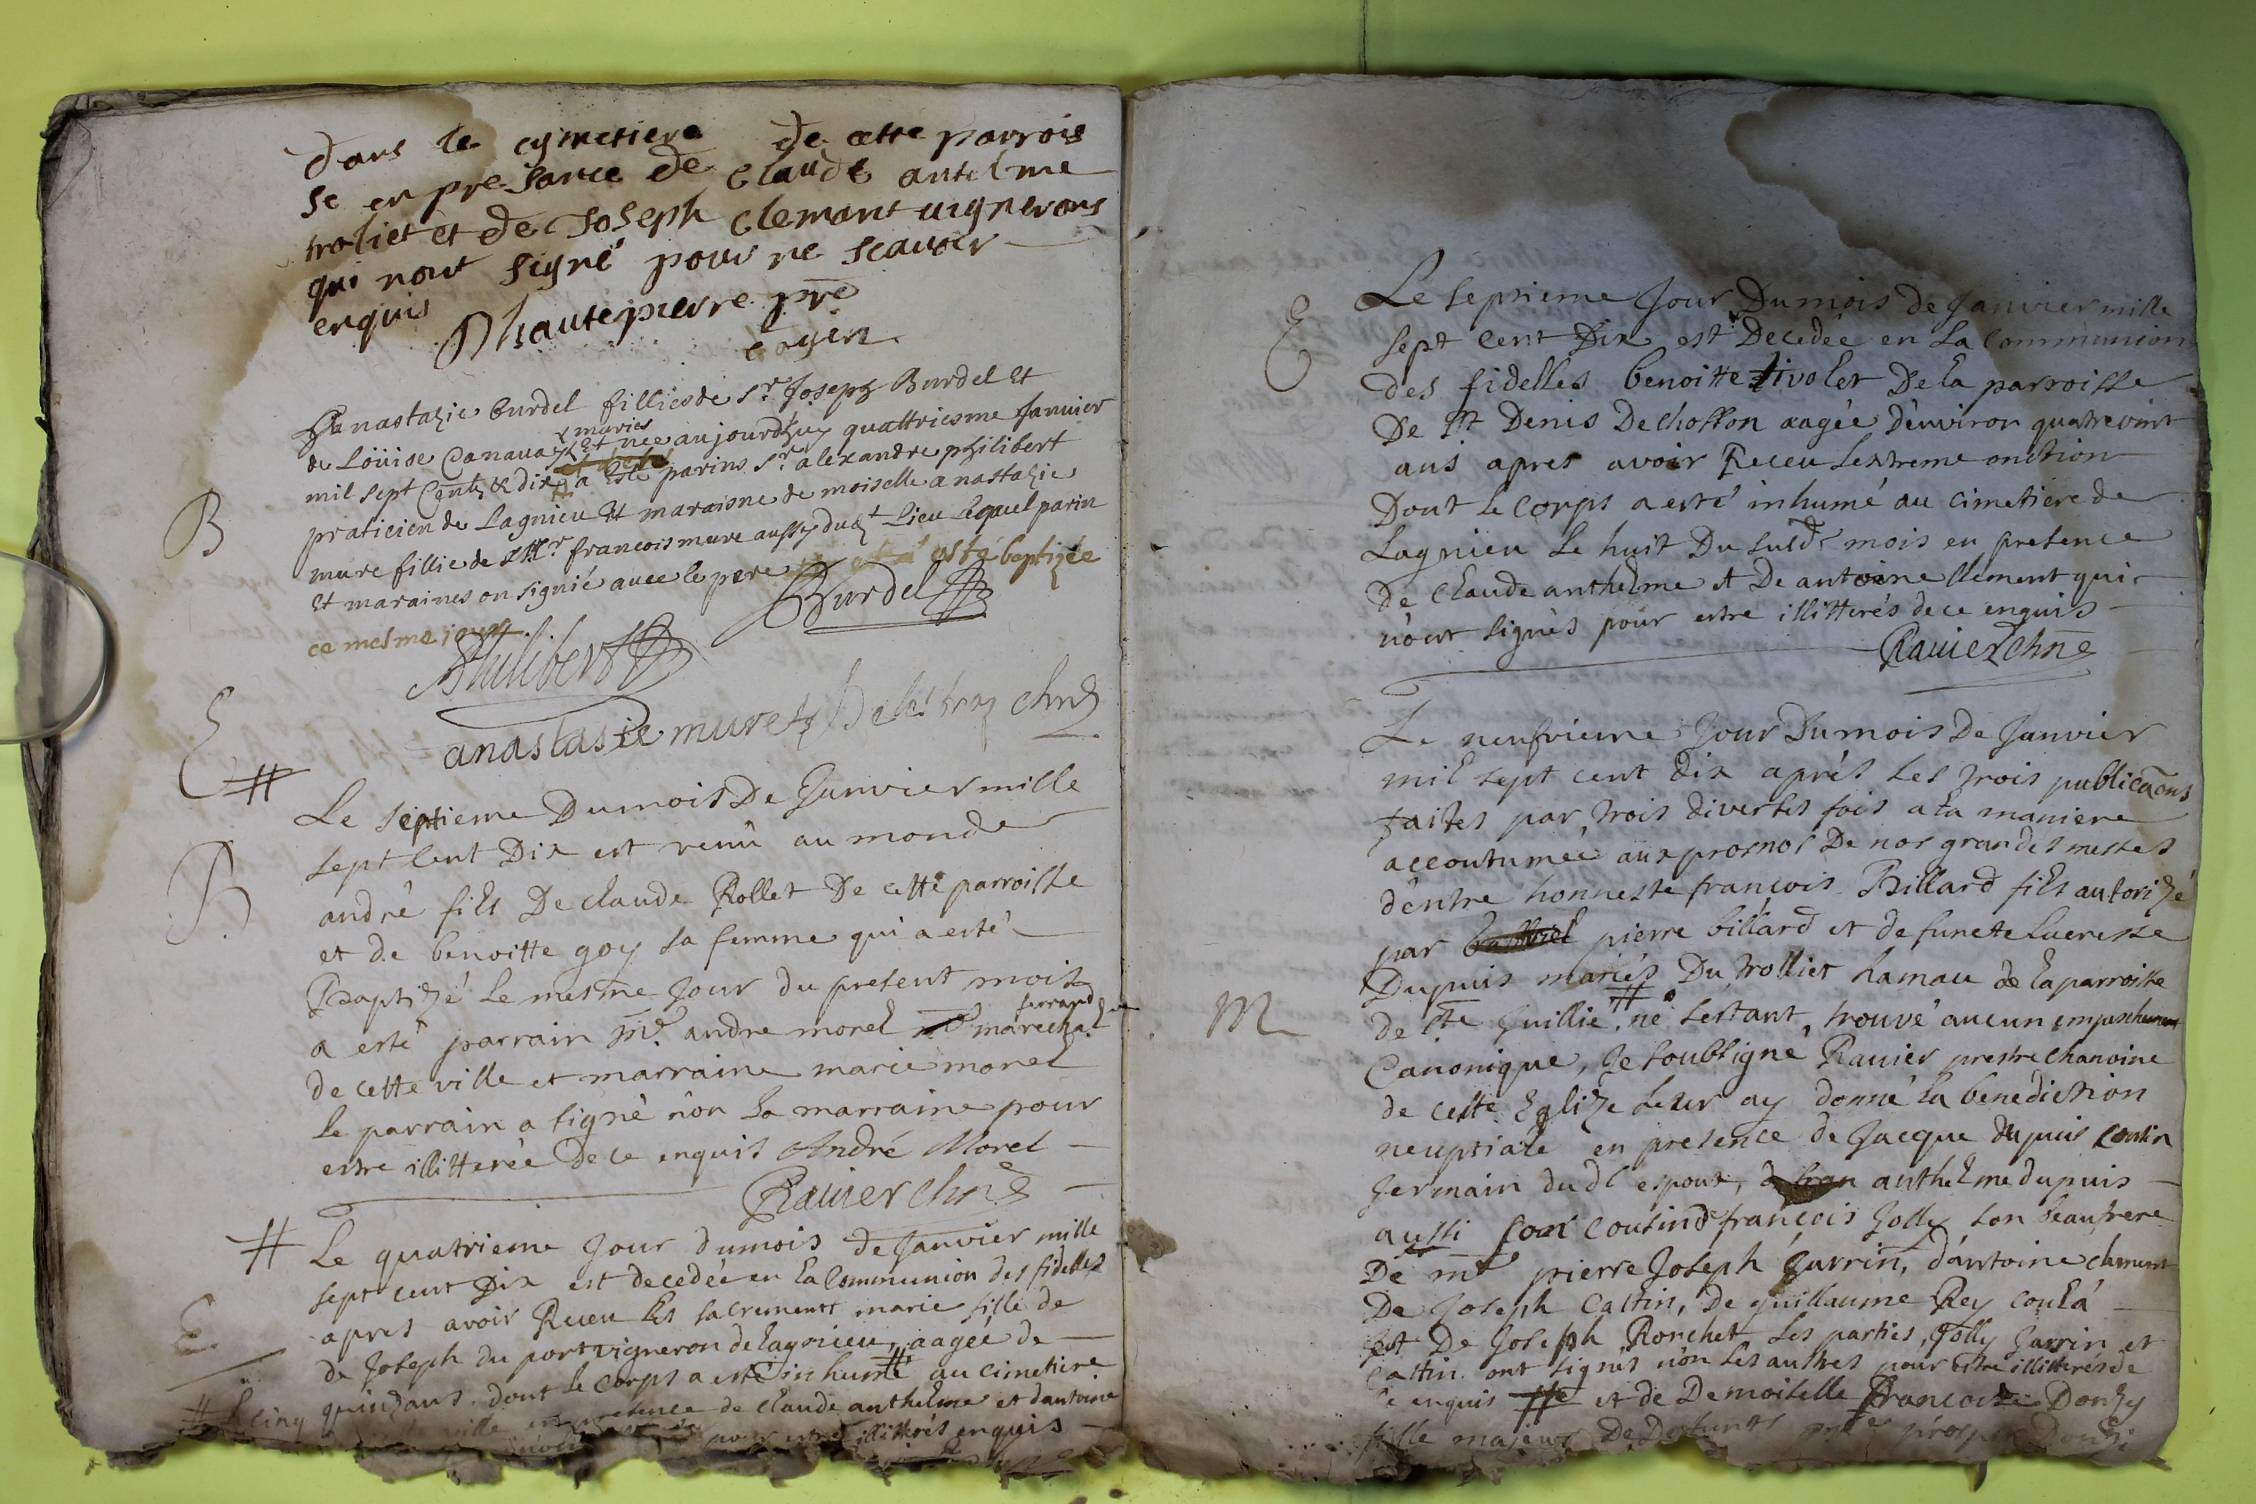 dans le cymetiere de cette parrois
se en presance de Claude antelme
troliet et de Joseph Clemant uignerons
qui nont signé pour ne scauoir
enquis
Dhautepierre pre
coyin
B
anastazie burdel fillie de Sr Joseph Burdel et
de Loüise Canaua maries
et nee aujourdhuy quattriesme Januier
mil sept Centz et dix a Esté parins Sr alexandre philibert
praticien de Lagnieu et maraisne de moiselle anastazie
mure fillie de Mr francois mure aussy dudt Lieu lequel parin
et maraines on signié auec le pere esté baptizée
ce mesme jour
Burdel
Philibert
anastasie mure
chne
E
#
B
Le septieme Du mois De Janvier mille
sept Cent Dix est venû au monde
andré fils De claude Rollet De cette parroisse
et de benoitte goy sa femme qui a esté
Baptizé le mesme Jour du present mois
a esté parrain me andre morel marechal ferrand
de cette ville et marraine marie morel
le parrain a signé non la marraine pour
estre illitterée de ce enquis André Morel
Rauier chne
#
E
Le quatrieme Jour du mois de Janvier mille
sept cent Dix est decedée en la Communion des fidelles
apres avoir Receu les sacrements marie fille de
de Joseph du port vigneron de lagnieu, aagée de
quinz ans. dont le corps a esté inhumé # au cimetiere
# le cinq
de cette ville en presence de claude anthelme et dantoine
pour estre illitterés enquis
E
Le septieme Jour Du mois de Janvier mille
sept cent Dix est Decedée en La Communion
des fidelles benoitte tivolet De la parroisse
De St Denis De Chosson aagée D'environ quatrevint
ans apres avoir Receu lextreme onction
Dont le corps a esté inhumé au cimetiere de
Lagnieu le huit Du susd mois en presence
De Claude anthelme et De antoine Clement qui
n'ont signés pour estre illitterés de ce enquis
Rauier chne
M
Le neufvieme Jour Du mois De Janvier
mil sept cent dix aprés les trois publicaons
faites par trois diverses fois a la maniere
accoutumée aux prosnes De nos grandes messes
d'entre honneste françois Billard fils autorizé
par pierre billard et defuncte lucresse
Dupuis mariés Du trolliet hamau de la parroisse
de Ste Juillie # ne sestant trouvé aucun empeschement
Canonique, Je soubsigné Rauier prestre chanoine
de cette Eglize leur ay donné la benediction
neuptiale en presence de Jacque dupuis cousin
germain dud espoux, d anthelme dupuis
aussi son cousin de françois Jolly son beaufrere
De me pierre Joseph garrin, d'antoine clement
De Joseph Cattin, de guillaume Rey
et De Joseph Ronchet les parties, Jolly garrin et
Cattin ont signés non les autres pour estre illitterés de
ce enquis # et de Demoiselle francoise Donzy
fille majeure De Defunts